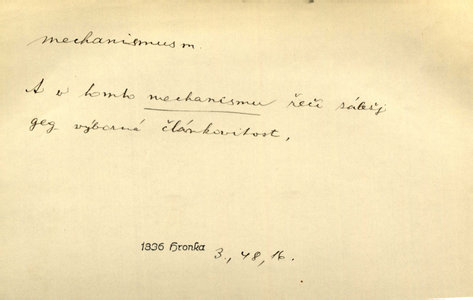 mechanismus m.
A w tomto mechanismu řeči záleží
geg výborná článkovitost,
1836 Hronka 3., 48, 16.